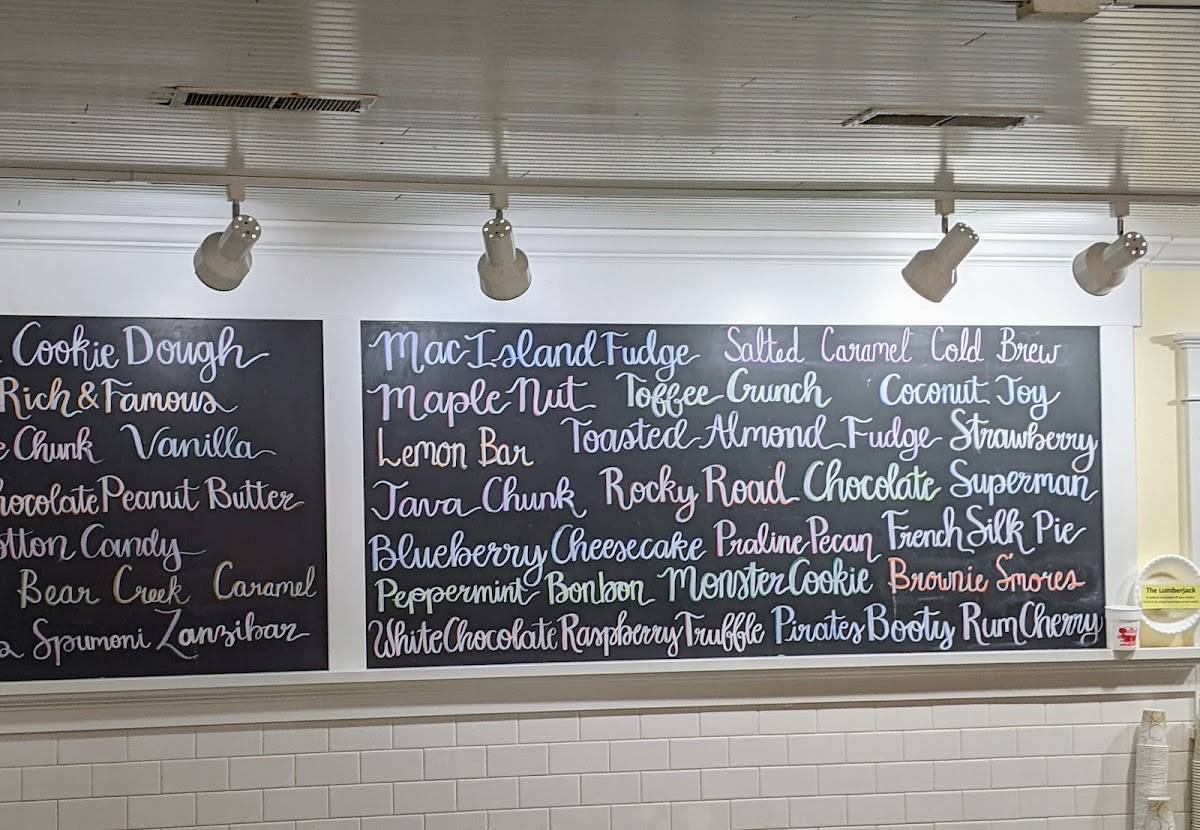 Cookie Dough
Rich & Famous
Chunk Vanilla
Peanut Butter
Candy
Bear Creek Caramel
Spumoni Zanzibar
Mac Island Fudge Salted Caramel Cold Brew
Maple Nut Toffee Crunch Coconut Joy
Lemon Bar Toasted Almond Fudge Strawberry
Java Chunk Rocky Road Chocolate Superman
Blueberry Cheesecake Praline Pecan French Silk Pie
Peppermint Bonbon Monster Cookie Brownie Smores
White Chocolate Raspberry Truffle Pirates Booty Rum Cherry
The Lumberjack